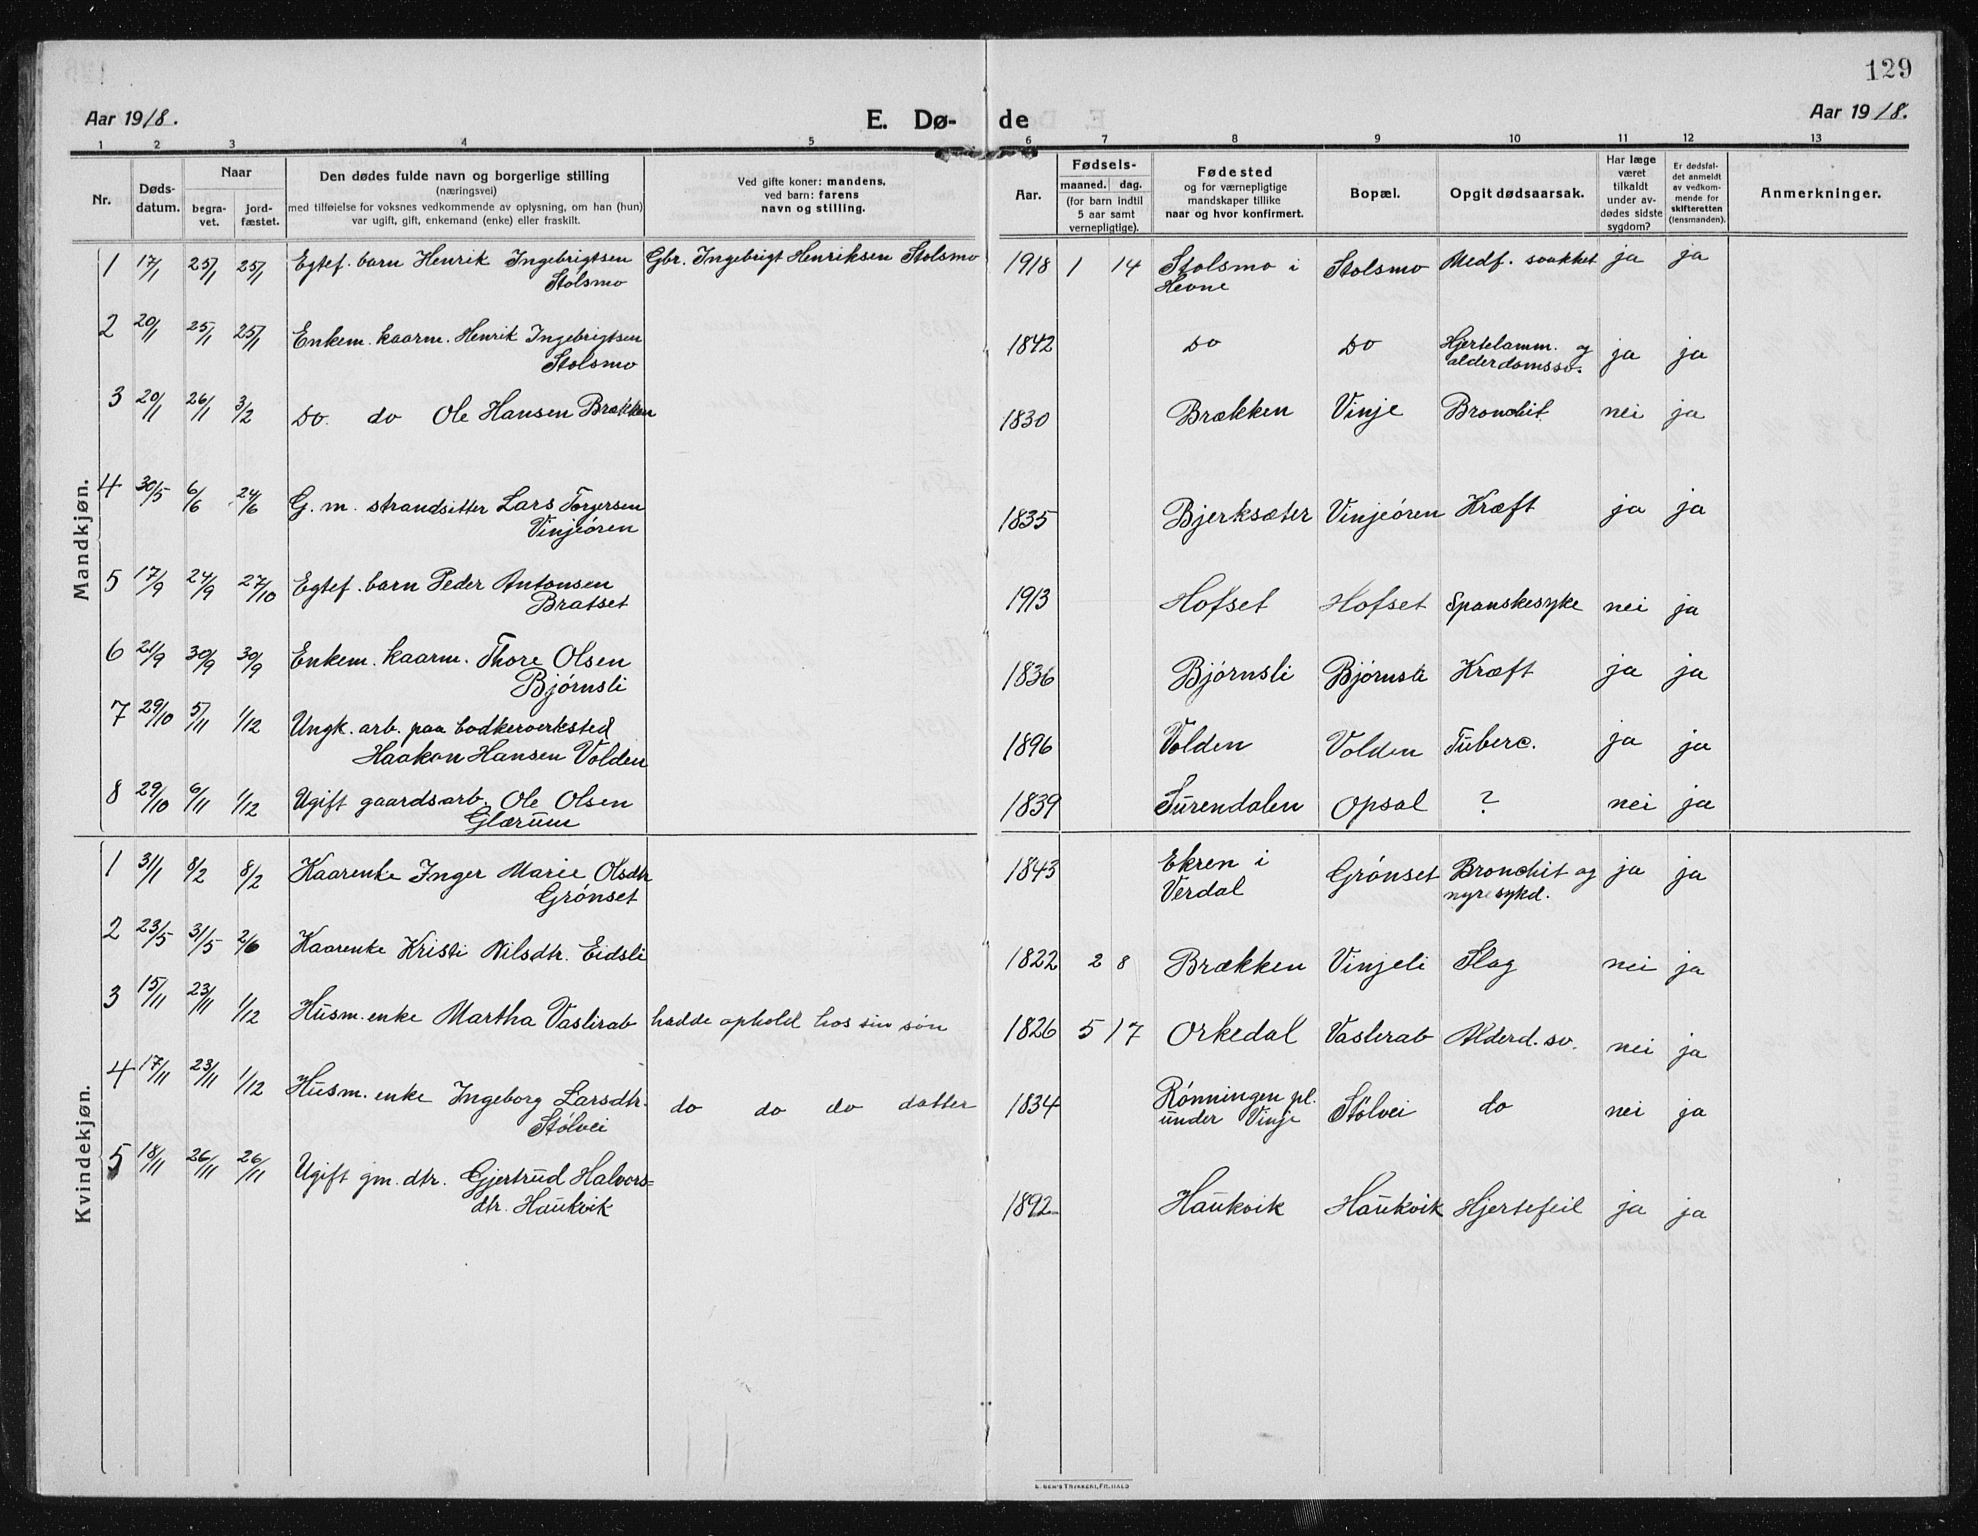 129
Aar 1918. E. Dø- de Aar 1918.
1 2 3 4 5 6 7 8 9 10 11 12 13
Nr.
Døds-
datum.
Naar
begra-
vet.
jord-
fæstet.
Den dødes fulde navn og borgerlige stilling
(næringsvei)
med tilføielse for voksnes vedkommende av oplysning, om han (hun)
var ugift, gift, enkemand (enke) eller fraskilt.
Ved gifte koner: mandens,
ved barn: farens
navn og stilling.
Aar.
Fødsels-
maaned. dag.
(for barn indtil
5 aar samt
vernepligtige).
Fødested
og for værnepligtige
mandskaper tillike
naar og hvor konfirmert.
Bopæl.
Opgit dødsaarsak.
Har læge
været
tilkaldt
under av-
dødes sidste
sygdom?
Er dødsfal-
det anmeldt
av vedkom-
mende for
skifteretten
(lensmanden).
Anmerkninger.
Mandkjøn.
1 17/1 25/1 25/1 Egtef. barn Henrik Ingebrigtsen Gbr. Ingebrigt Henriksen Stolsmo 1918 1 14 Stolsmo i Stolsmo Medf. svakhet ja ja
Stolsmo Hevne
2 20/1 25/1 25/1 Enkem. kaarm. Henrik Ingebrigtsen 1842 Do Do Hjertelamm. og ja ja
Stolsmo alderdomssv.
3 20/1 26/1 3/2 Do. do Ole Hansen Brækken 1830 Brækken Vinje Bronchit nei ja
4 30/5 6/6 24/6 G. m. strandsitter Lars Torgersen 1835 Bjerksæter Vinjeøren Kræft ja ja
Vinjeøren
5 17/9 24/9 27/10 Egtef. barn Peder Antonsen 1913 Hofset Hofset Spanskesyke nei ja
Bratset
6 21/9 30/9 30/9 Enkem. kaarm. Thore Olsen 1836 Bjørnsli Bjørnsli Kræft ja ja
Bjørnsli
7 29/10 5/11 1/12 Ungk. arb. paa bødkerverksted 1896 Volden Volden Tuberc. ja ja
Haakon Hansen Volden
8 29/10 6/11 1/12 Ugift gaardsarb. Ole Olsen 1839 Surendalen Opsal ? nei ja
Glærum
Kvindekjøn.
1 31/1 8/2 8/2 Kaarenke Inger Marie Olsdtr 1843 Ekren i Grønset Bronchit og ja ja
Grønset Verdal nyresykd.
2 23/5 31/5 2/6 Kaarenke Kristi Nilsdtr. Eidsli 1822 2 8 Brækken Vinjeli Slag nei ja
3 15/11 23/11 1/12 Husm. enke Martha Vaslirab hadde ophold hos sin søn 1826 5 17 Orkedal Vaslirab Alderd. sv. nei ja
4 17/11 23/11 1/12 Husm. enke Ingeborg Larsdtr. do do do datter 1834 Rønningen pl. Stølvei do nei ja
Stølvei under Vinje
5 18/11 26/11 26/11 Ugift gm. dtr. Gjertrud Halvors= 1892 Haukvik Haukvik Hjertefeil ja ja
dtr. Haukvik